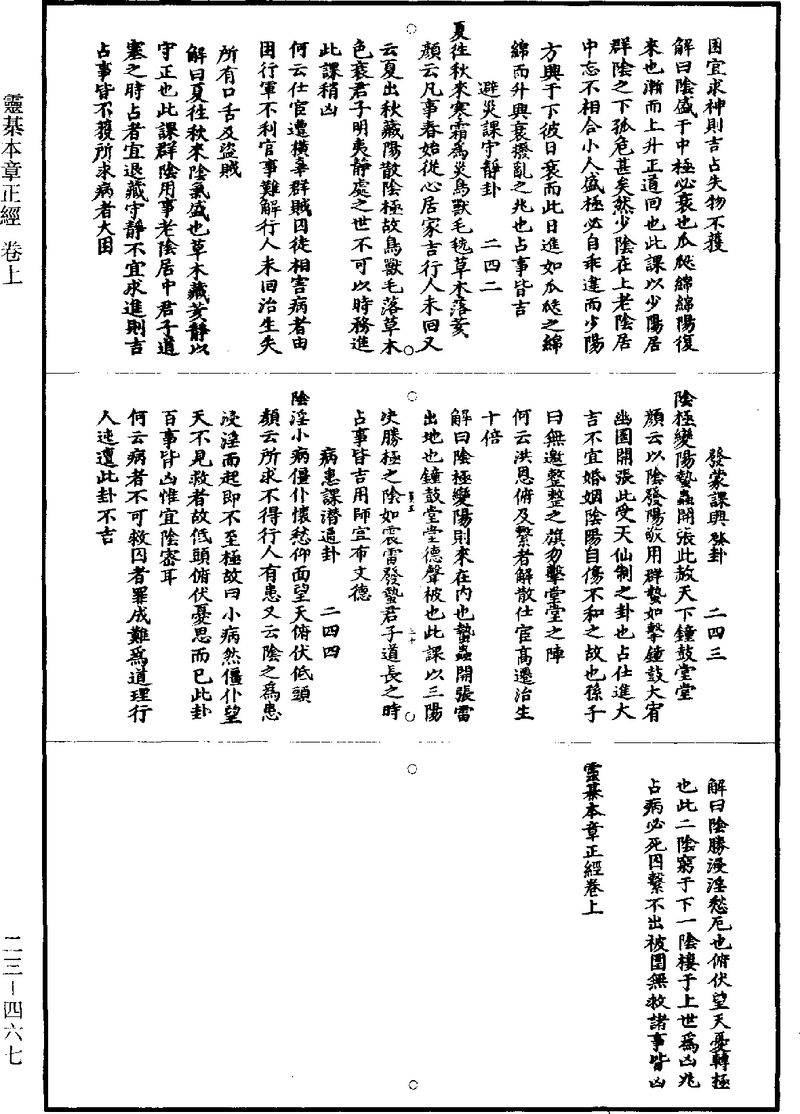 靈棊本章正經 卷上
困宜求神則吉占失物不獲
解曰陰盛于中極必衰也瓜瓞綿綿陽復
來也漸而上升正道回也此課以少陽居
群陰之下孤危甚矣然少陰在上老陰居
中忘不相合小人盛極必自乖違而少陽
方興于下彼日衰而此日進如瓜瓞之綿
綿而升興衰撥亂之兆也占事皆吉
避災課守靜卦 二四二
夏往秋來寒霜為災鳥獸毛毨草木落荄
顏云凡事春始從心居家吉行人未回又
云夏出秋藏陽散陰極故鳥獸毛落草木
色衰君子明夷靜處之世不可以時務進
此課稍凶
何云仕宦遭橫辜群賊囚徒相害病者由
困行軍不利官事難解行人未回治生失
所有口舌及盜賊
解曰夏往秋來陰氣盛也草木藏荄靜以
守正也此課群陰用事老陰居中君子道
塞之時占者宜退藏守靜不宜求進則吉
占事皆不獲所求病者大困
發蒙課興 卦 二四三
陰極變陽蟄蟲開張此赦天下鐘鼓堂堂
顏云以陰發陽敬用群蟄如擊鐘鼓大宥
幽圄開張此受天仙制之卦也占仕進大
吉不宜婚姻陰陽自傷不和之故也孫子
曰無邀整整之旗勿擊堂堂之陣
何云洪恩俯及繫者解散仕宦高遷治生
十倍
解曰陰極變陽則來在內也蟄蟲開張雷
出地也鐘鼓堂堂德聲被也此課以三陽
決勝極之陰如震雷發蟄君子道長之時
占事皆吉用師宜布文德
病患課潛通卦 二四四
陰淫小病僵仆懷愁仰面望天俯伏低頭
顏云所求不得行人有患又云陰之為患
浸淫而起即不至極故曰小病然僵仆望
天不見救者故低頭俯伏憂思而已此卦
百事皆凶惟宜陰密耳
何云病者不可救囚者罪成難為道理行
人速遭此卦不吉
解曰陰勝浸淫愁厄也俯伏望天憂轉極
也此二陰窮于下一陰棲于上世為凶兆
占病必死囚繫不出被圍無救諸事皆凶
靈棊本章正經卷上
二三－四六七